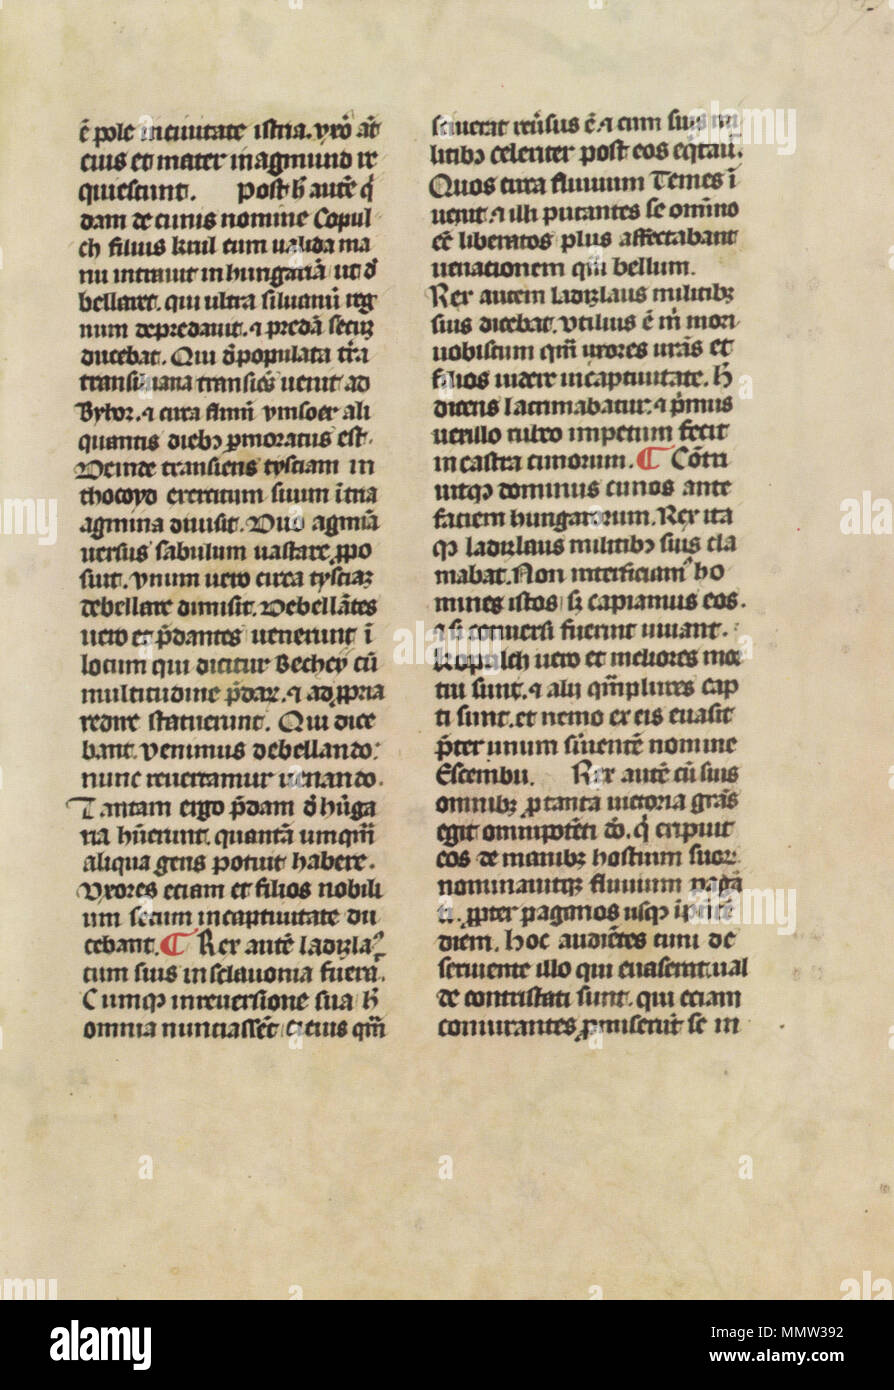 ē pole in civitate istria. vxō aūt
eius et mater in agmund re
quiescunt. Post h̄ autē q̄
dam de cunis nomine Copul
ch filius krul cum valida ma
nu intrauit in hungariā ut d̄
bellaret. qui ultra siluanū reg
num depredauit. ⁊ predā secuꝫ
ducebat. Qui d̄populata trā
transiluana transiēs uenit ad
Byhor. ⁊ circa flumē ymsoer ali
quantis dieb⁹ ꝑmoratus est.
Deinde transiens tysciam in
thocoyd exercitum suum ī tria
agmina diuisit. Duo agmīa
uersus sabulum uastare ꝓpo
suit. vnum uero circa tysciaꝫ
debellare dimisit. Debellātes
uero et p̄dantes uenerunt ī
locum qui dicitur Bechey cū
multitudine p̄dar. ⁊ ad ꝓpria
redire statuerunt. Qui dice
bant. venimus debellando:
nunc reuertamur uenando.
Tantam ergo p̄dam d̄ hūga
ria hūerunt. quantā umqm̄
aliqua gens potuit habere.
Vxores eciam et filios nobili
um secum in captiuitate du
cebant. ¶ Rex autē ladizla⁹
cum suis in sclauonia fuerat.
Cumqꝫ in reuersione sua h̄
omnia nunciassēt. citius qm̄
sciuerat reūsus ē. ⁊ cum suis mi
litibꝫ celeriter post eos eqtaū.
Quos circa fluuium Temes ī
uenit. ⁊ illi putantes se omīno
eē liberatos plus affectabant
uenationem qm̄ bellum.
Rex autem ladizlaus militibꝫ
suis dicebat. Vtilius ē m̄ mori
uobiscum qm̄ vxores urās et
filios uidere in captiuitate. h̄
dicens lacrimabatur. ⁊ p̄mus
uexillo rubro impetum fecit
in castra cunorum. ¶ Cōtri
uitqꝫ dominus cunos ante
faciem hungarorum. Rex ita
qꝫ ladizlaus militibꝫ suis cla
mabat. Non interficiam⁹ ho
mines istos sꝫ capiamus eos.
⁊ si conuersi fuerint uiuant.
Kopulch uero et meliores mor
tui sunt. ⁊ alij qm̄plures cap
ti sunt. et nemo ex eis euasit
p̄ter unum siuuentē nomine
Escembu. Rex autē cū suis
omnibꝫ ꝓ tanta uictoria grās
egit omnipotēti dō. q̄ eripuit
eos de manibꝫ hostium suor.
nominauitqꝫ fluuium pagā
ti. ꝓpter paganos usqꝫ ī p̄sētē
diem. Hoc audiētes cuni de
seruente illo qui euaserat. ual
de contristati sunt. qui eciam
coniurantes ꝓmiserūt se in
alamy stock photo
MMW392
www.alamy.com